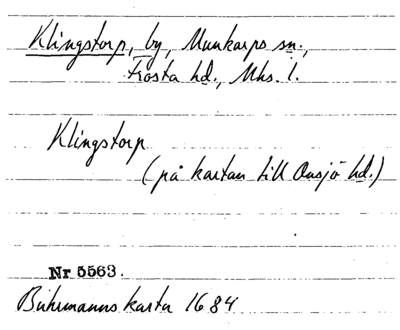 Klingstorp, by, Munkarps sn.,
Frosta hd., Mhs. l.
Klingstorp
(på kartan till Onsjö hd.)
Nr 5563.
Buhrmanns karta 1684